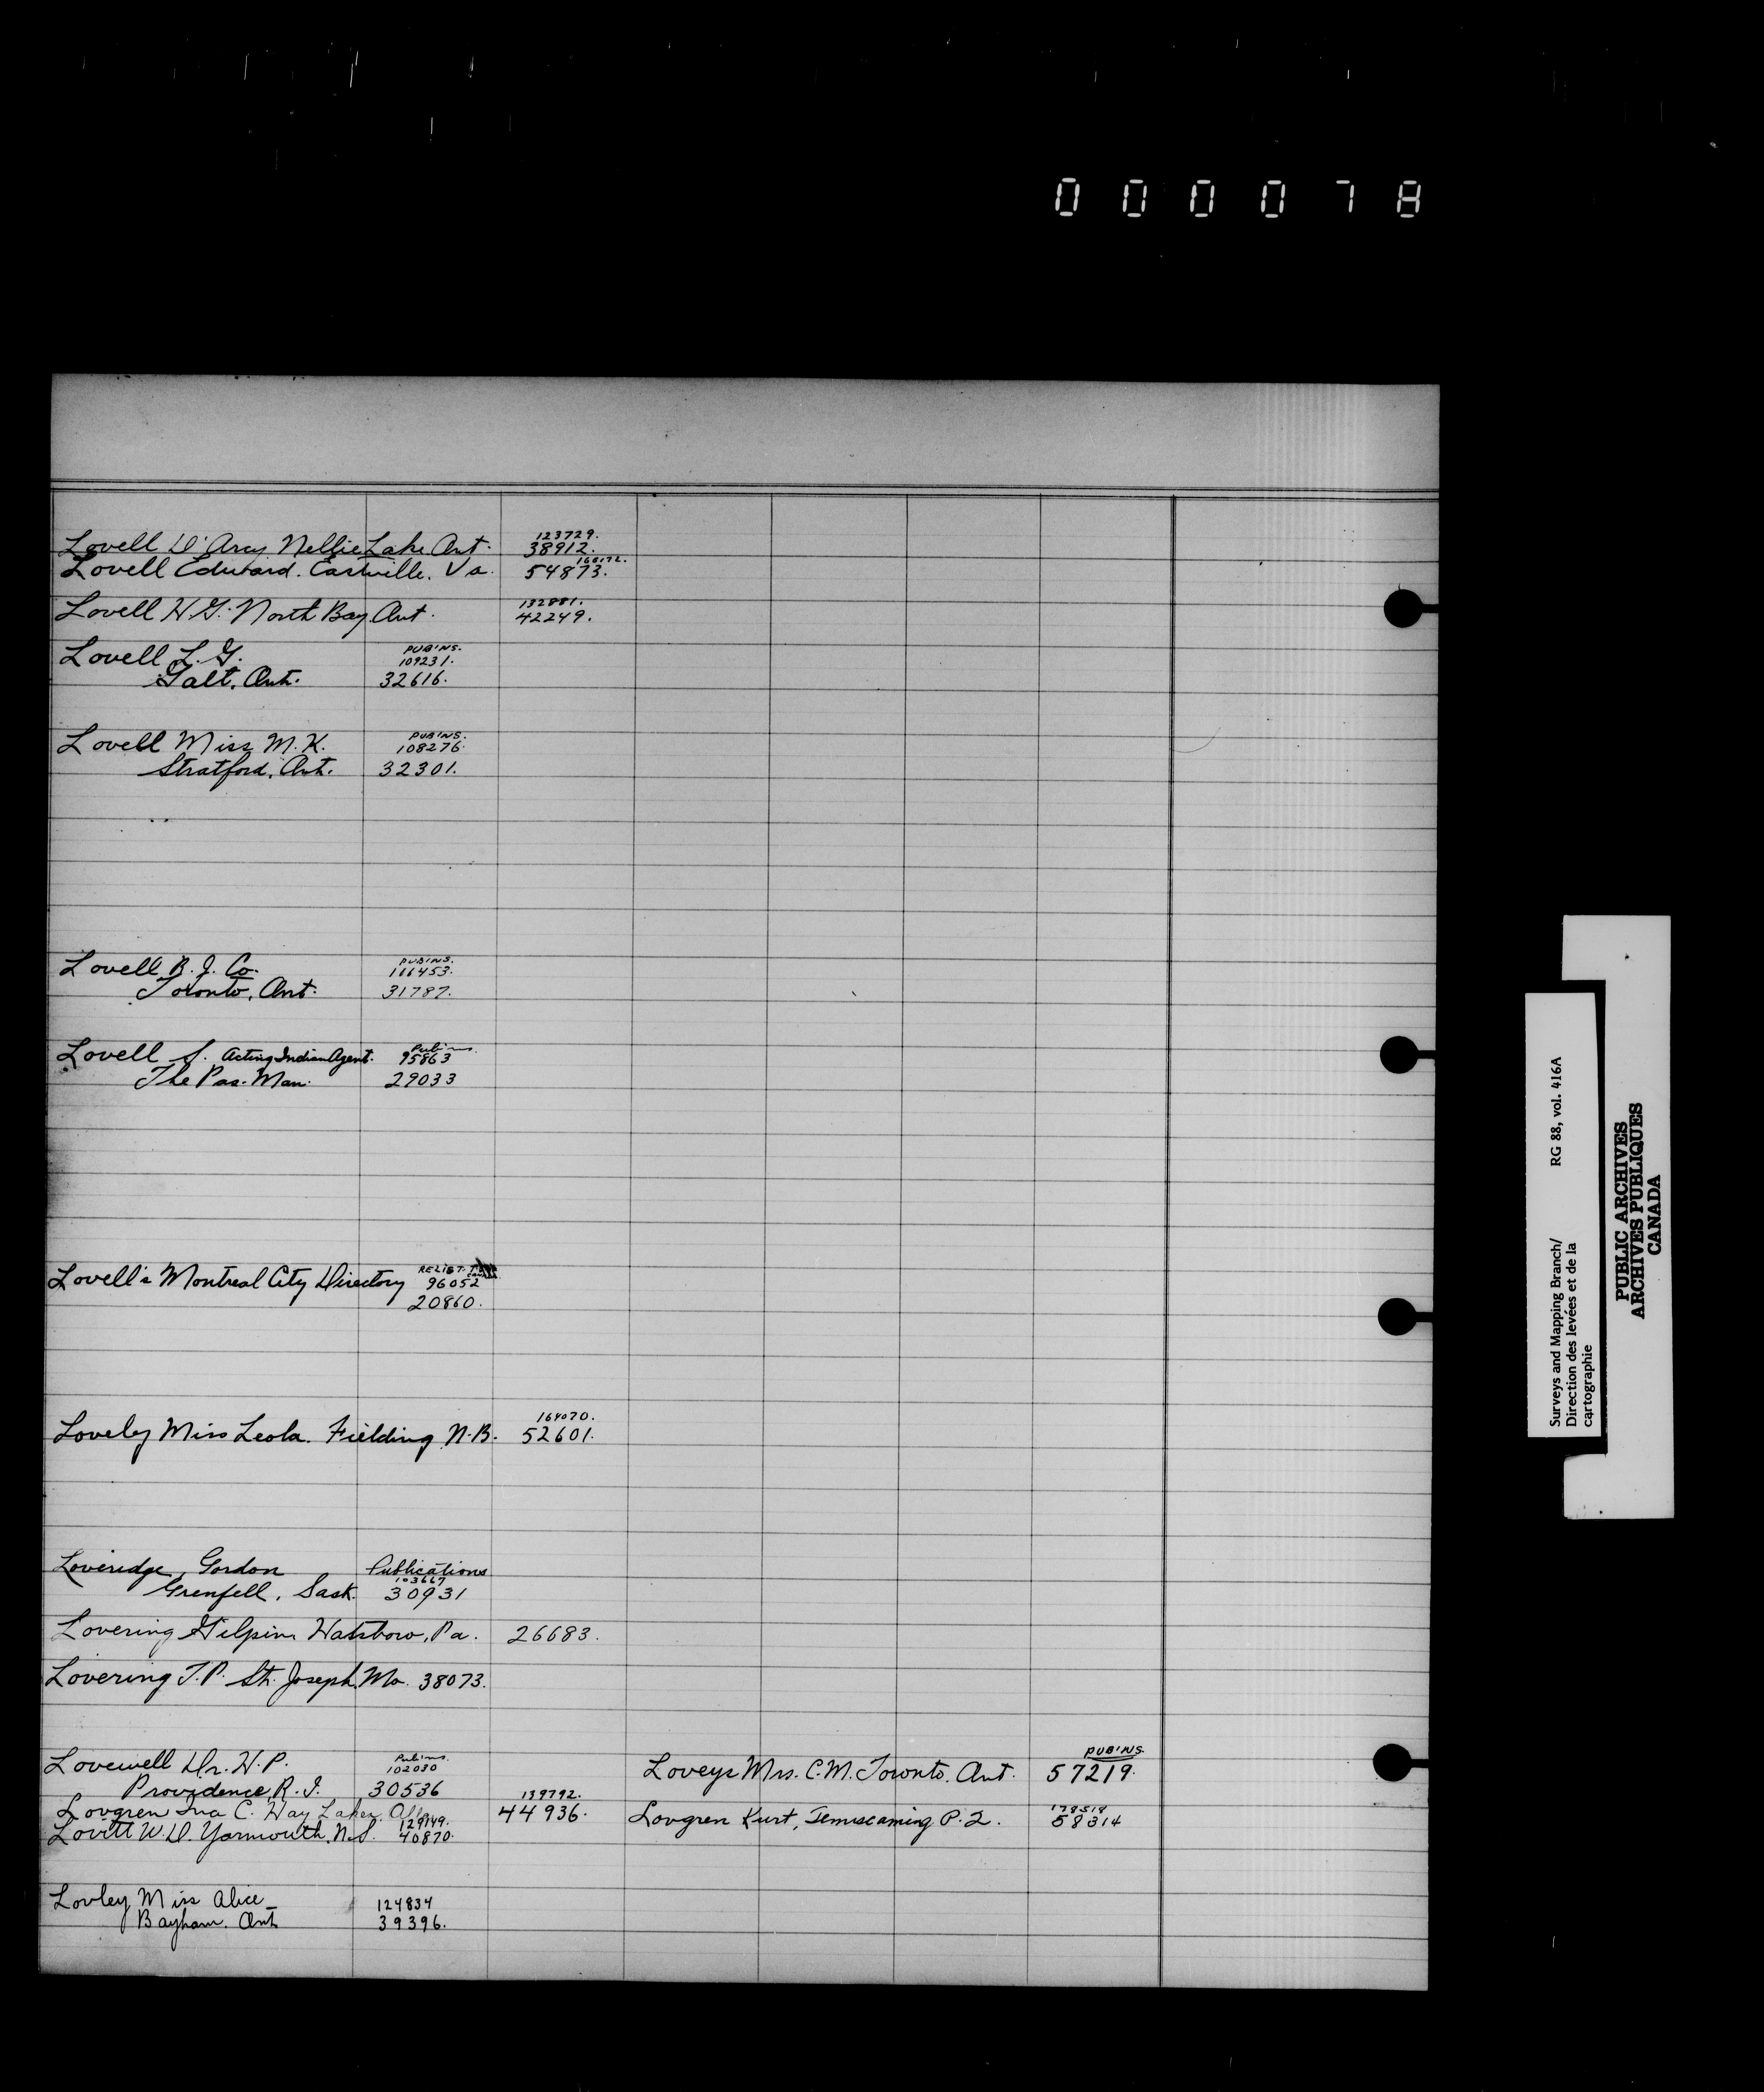 000078
123729.
Lovell D'Arcy Nellie Lake Ont. 38912.
168172.
Lovell Edward. Eastville. Va. 54873.
132881.
Lovell H.G. North Bay Ont. 42249.
Lovell L.G. PUB'NS.
109231.
Galt. Ont. 32616.
Lovell Miss M.K. PUB'NS.
108276.
Stratford. Ont. 32301.
Lovell R.J. Co. PUB'NS.
Toronto, Ont. 31787.
Lovell S. Acting Indian Agent. Pub'ns.
95863
The Pas. Man. 29033
Lovell's Montreal City Directory RELIST.
96052
20860.
164070.
Lovely Miss Leola. Fielding N.B. 52601.
Loveridge, Gordon Publications
103667
Grenfell, Sask. 30931
Lovering Gilpin. Hatsboro, Pa. 26683.
Lovering T.P. St. Joseph. Mo. 38073.
Lovewell Dr. H.P. Pub'ns.
102030
Providence, R.I. 30536
139792.
Lovgren Ina C. Hay Lakes, Alta. 44936.
129149.
Lovitt W.D. Yarmouth, N.S. 40870.
Lovley Miss Alice
124834
Bayham. Ont. 39396.
PUB'NS.
Loveys Mrs. C.M. Toronto. Ont. 57219.
178518
Lovgren Kurt, Temiscaming P.Q. 58314
Surveys and Mapping Branch/ RG 88, vol. 416A
Direction des levées et de la
cartographie
PUBLIC ARCHIVES
ARCHIVES PUBLIQUES
CANADA